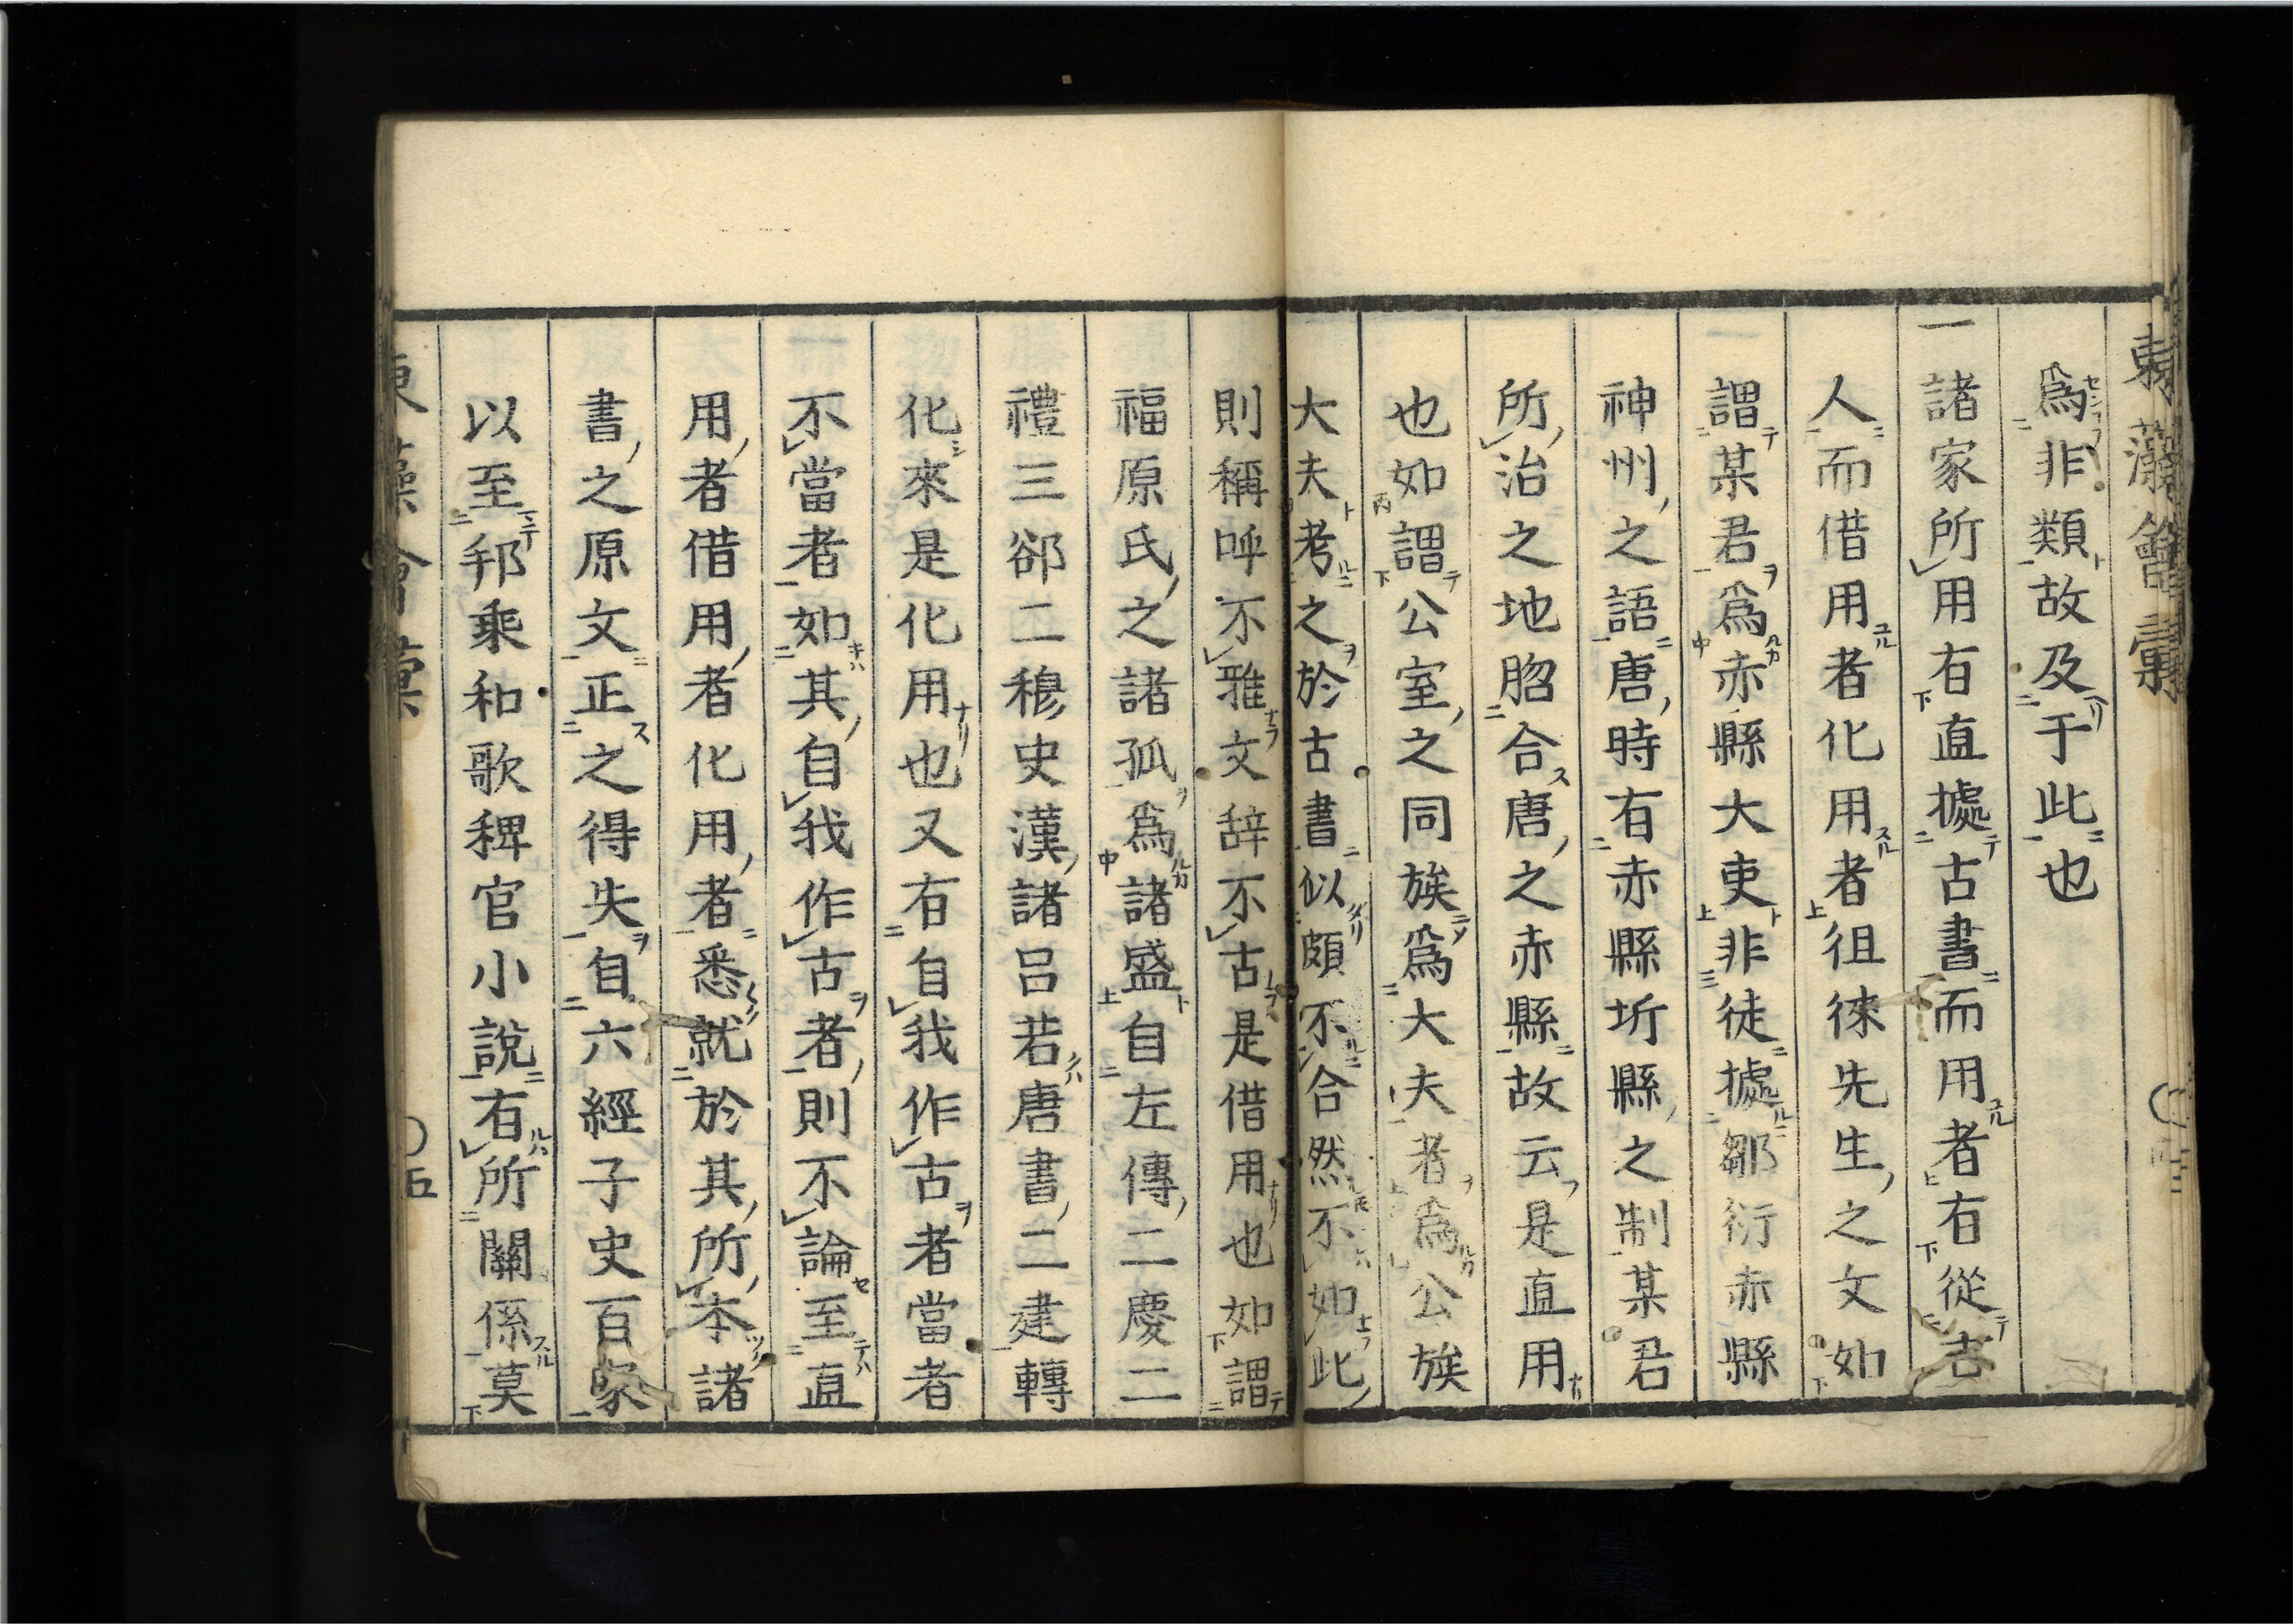 東藻會彙
爲非類故及于此也
一諸家所用有直據古書而用者有從古
人而借用者化用者徂徠先生之文如
謂某君爲赤縣大吏非徒據鄒衍赤縣
神州之語唐時有赤縣圻縣之制某君
所治之地脗合唐之赤縣故云是直用
也如謂公室之同族爲大夫者爲公族
大夫考之於古書似頗不合然不如此
則稱呼不雅文辞不古是借用也如謂
福原氏之諸孤爲諸盛自左傳二慶二
禮三郤二穆史漢諸呂若唐書二建轉
化來是化用也又有自我作古者當者
不當者如其自我作古者則不論至直
用者借用者化用者悉就於其所本諸
書之原文正之得失自六經子史百家
以至邦乘和歌稗官小說有所關係莫
東藻會彙
五